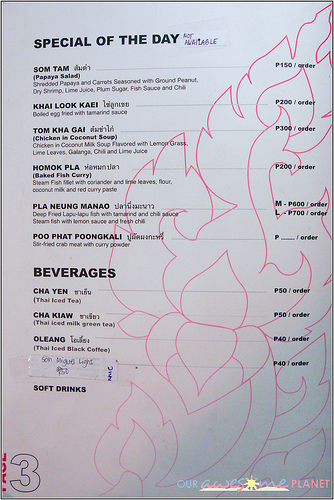 SPECIAL OF THE DAY NOT AVAILABLE
SOM TAM ส้มตำ P150 / order
(Papaya Salad)
Shredded Papaya and Carrots Seasoned with Ground Peanut,
Dry Shrimp, Lime Juice, Plum Sugar, Fish Sauce and Chili
KHAI LOOK KAEI ไข่ลูกเขย P200 / order
Boiled egg fried with tamarind sauce
TOM KHA GAI ต้มข่าไก่ P300 / order
(Chicken in Coconut Soup)
Chicken in Coconut Milk Soup Flavored with Lemon Grass,
Lime Leaves, Galanga, Chili and Lime Juice
HOMOK PLA ห่อหมกปลา P200 / order
(Baked Fish Curry)
Steam Fish fillet with coriander and lime leaves, flour,
coconut milk and red curry paste
PLA NEUNG MANAO ปลานึ่งมะนาว M - P600 / order
Deep Fried Lapu-lapu fish with tamarind and chili sauce L - P700 / order
Steam fish with lemon sauce and fresh chili
POO PHAT POONGKALI ปูผัดผงกะหรี่ P ____ / order
Stir-fried crab meat with curry powder
BEVERAGES
CHA YEN ชาเย็น P50 / order
(Thai Iced Tea)
CHA KIAW ชาเขียว P50 / order
(Thai iced milk green tea)
OLEANG โอเลี้ยง P40 / order
(Thai Iced Black Coffee)
San Miguel Light P40 / order
SOFT DRINKS
PAGE
3
OUR awesome PLANET